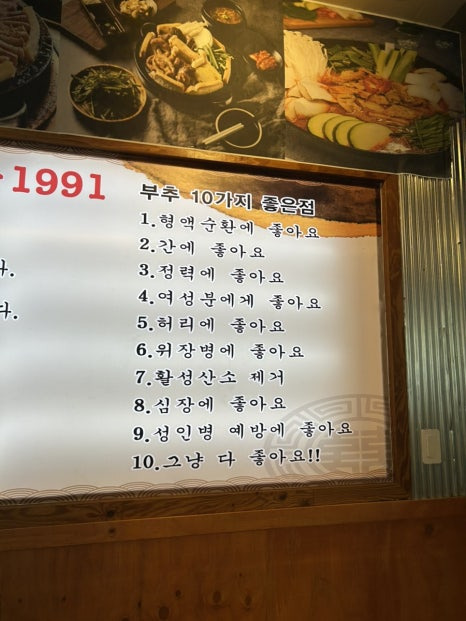 1991
다.
다.
부추 10가지 좋은점
1.형액순환에 좋아요
2.간에 좋아요
3.정력에 좋아요
4.여성분에게 좋아요
5.허리에 좋아요
6.위장병에 좋아요
7.활성산소 제거
8.심장에 좋아요
9.성인병 예방에 좋아요
10.그냥 다 좋아요!!